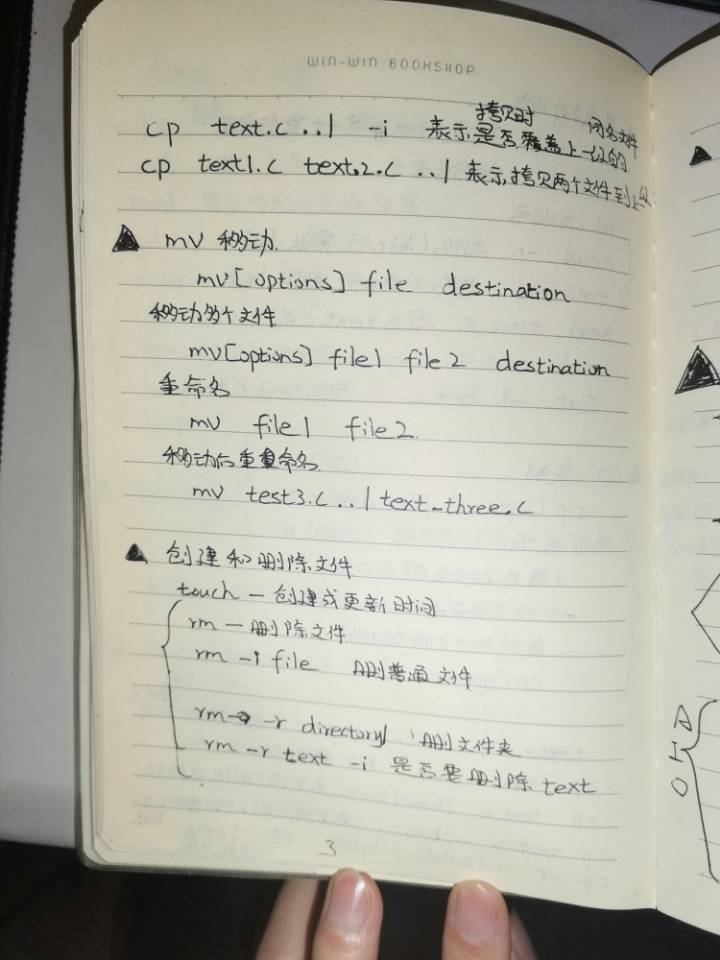 WIN-WIN BOOKSHOP
cp text.c ../ -i 表示拷贝时是否覆盖上一级的同名文件
cp text1.c text2.c ../ 表示拷贝两个文件到上级
▲ mv 移动.
mv[options] file destination
移动多个文件
mv[options] file1 file2 destination
重命名
mv file1 file2.
移动后重命名.
mv test3.c ../text_three.c
▲ 创建和删除文件
touch — 创建或更新时间
rm — 删除文件
rm -i file 删普通文件
rm -r directory/ 删文件夹
rm -r text -i 是否要删除 text
3